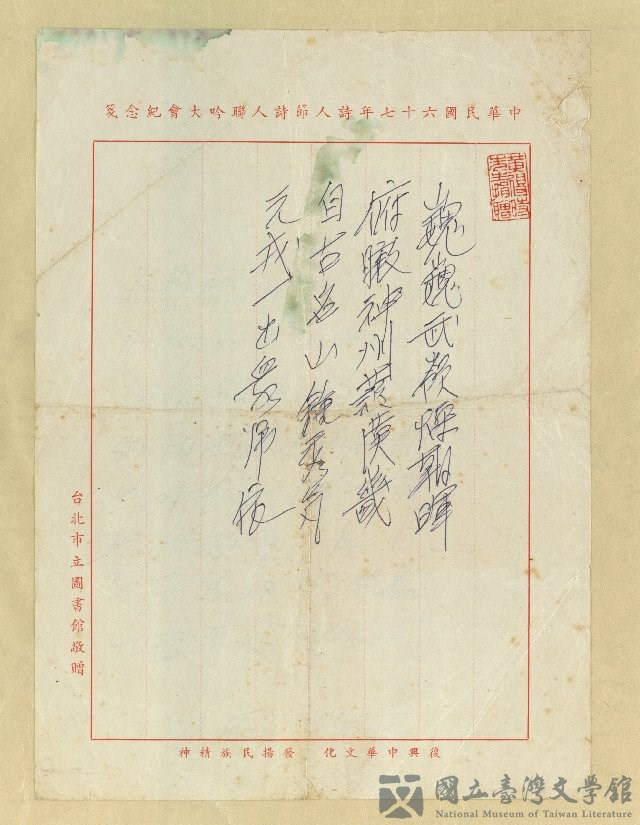 中華民國六十七年詩人節詩人聯吟大會紀念箋
黃得時
先生捐贈
巍巍武嶺朝暉
俯瞰神州護漢畿
自古名山鍾秀氣
元戎一出眾歸依
台北市立圖書館敬贈
復興中華文化 發揚民族精神
國立臺灣文學館
National Museum of Taiwan Literature